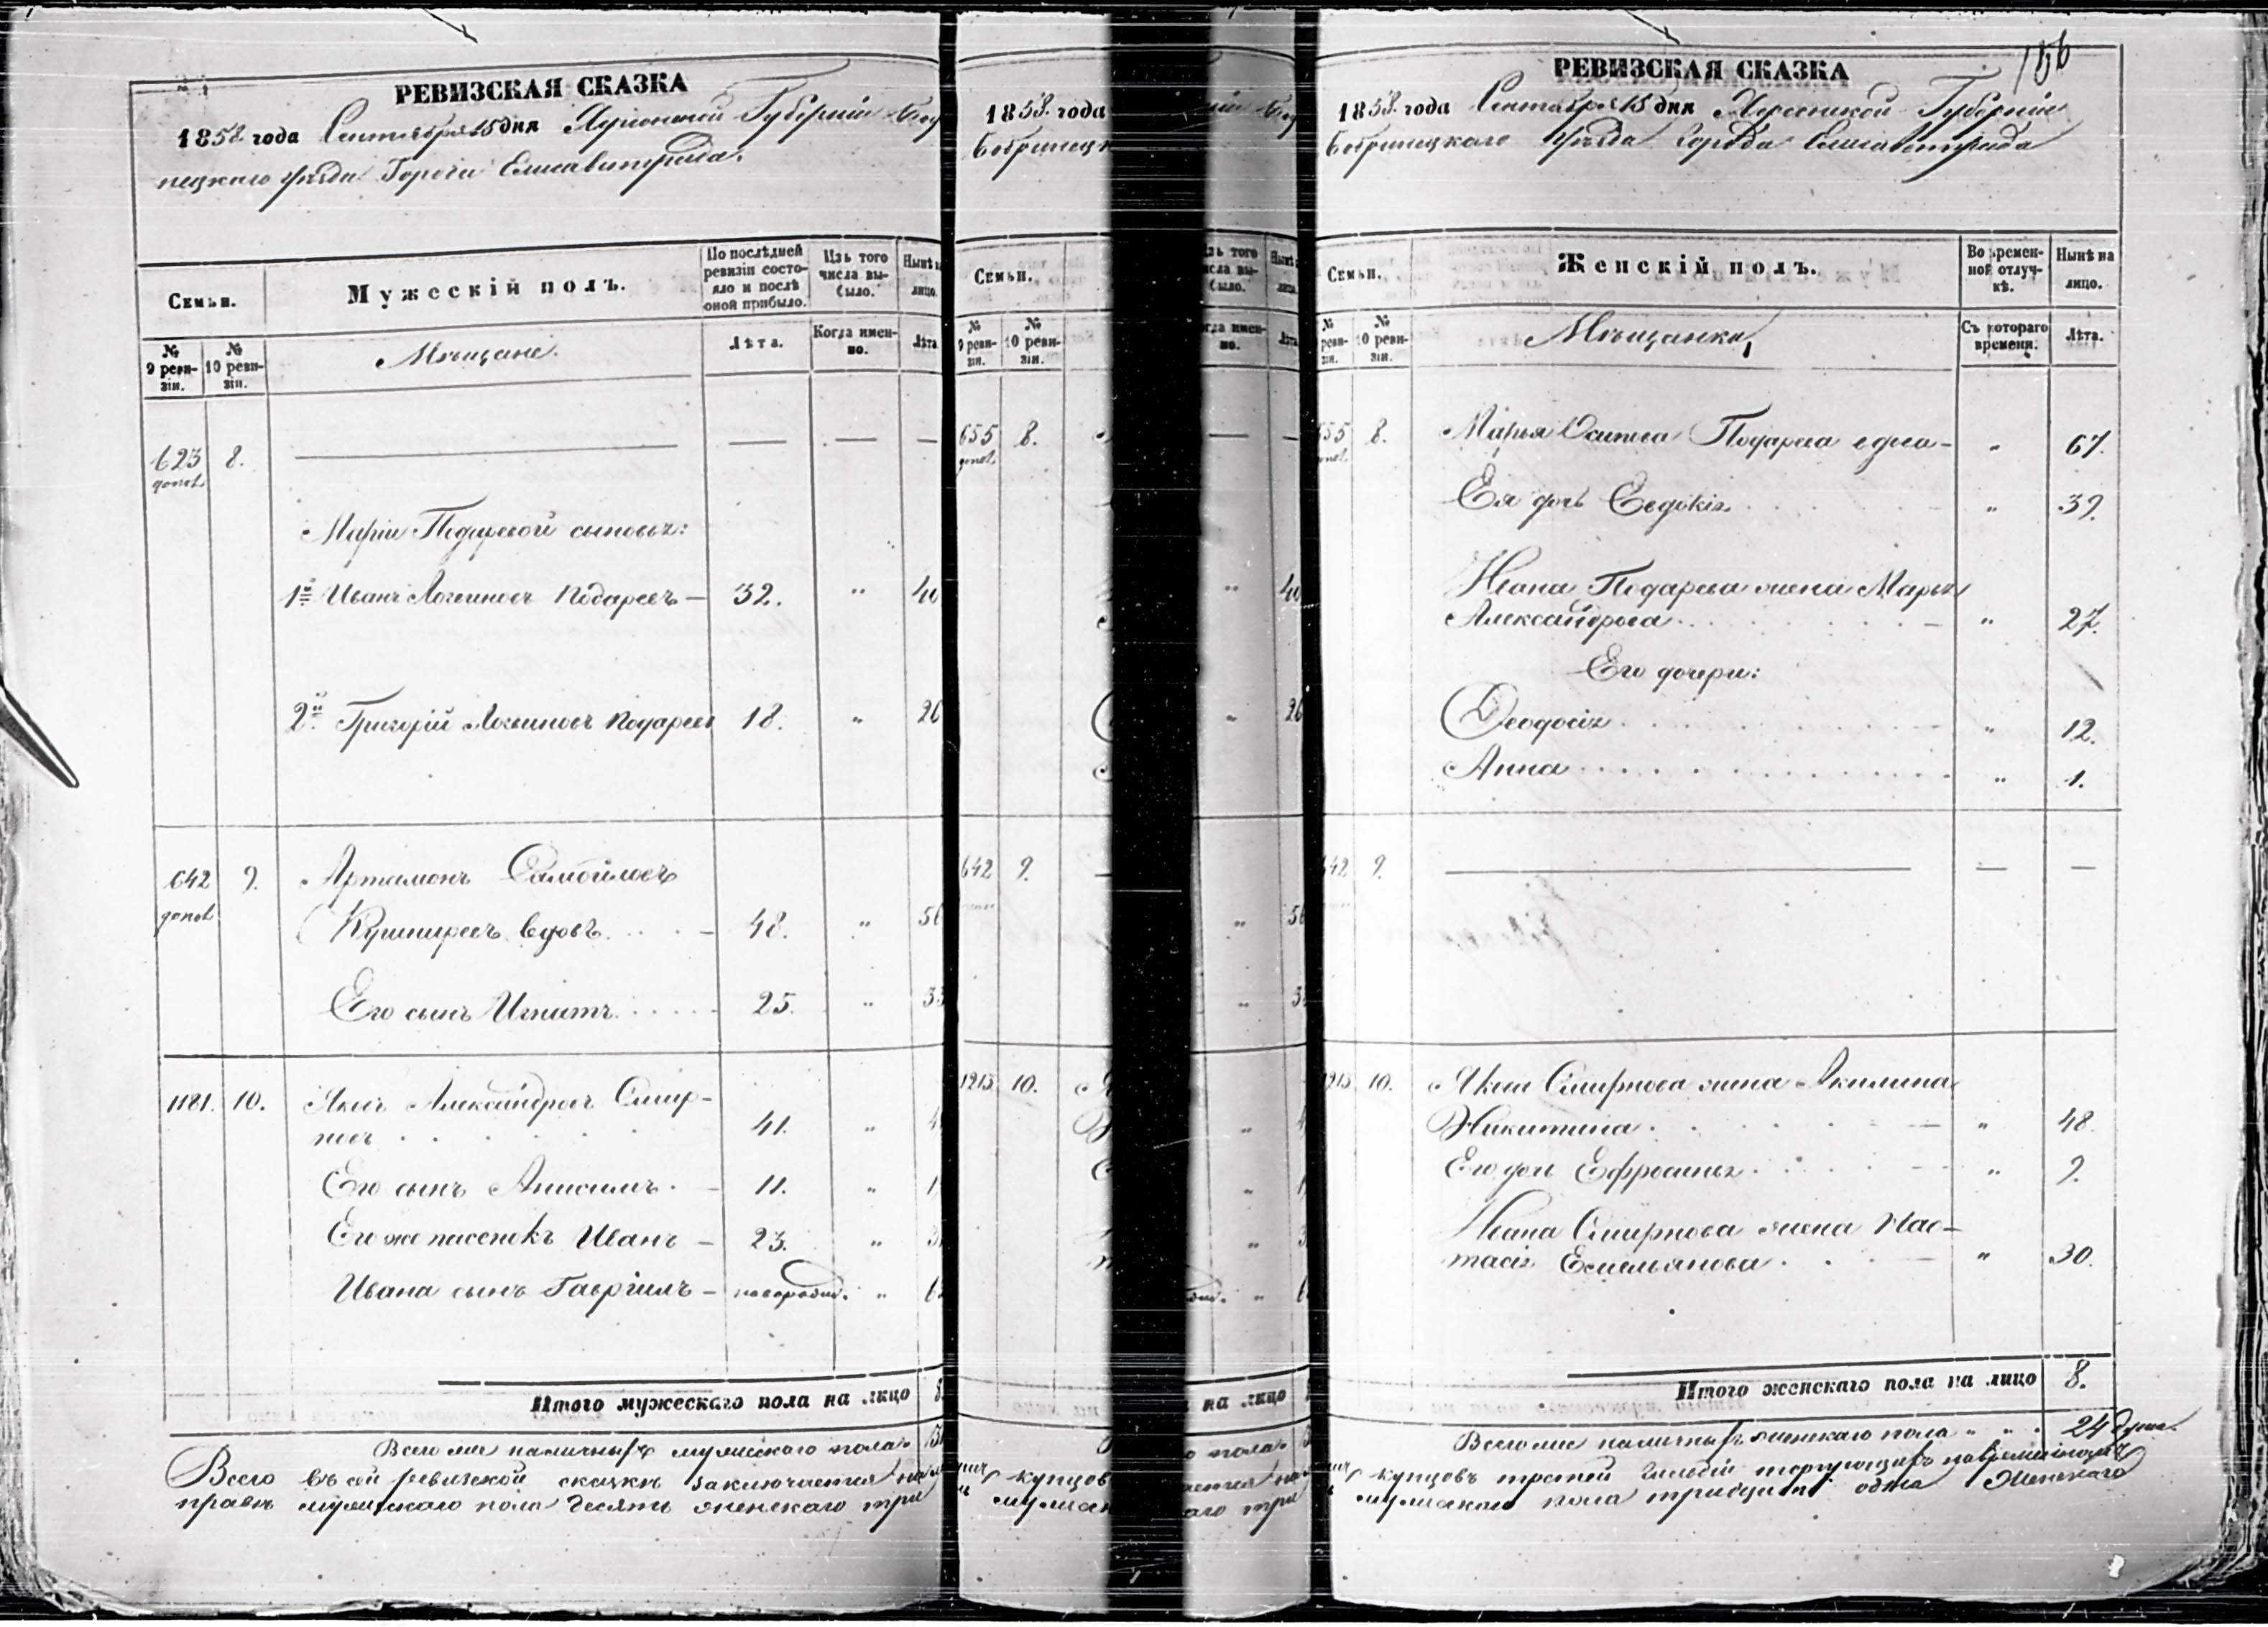 РЕВИЗСКАЯ СКАЗКА
1858 года Сентября 15 дня Херсонской Губерніи Бобри
нецкаго уѣзда Города Елисаветграда.
Семьи.
Мужескій полъ.
По послѣдней ревизіи состояло и послѣ оной прибыло.
Изъ того числа выбыло.
Нынѣ на лицо.
№ 9 ревизіи.
№ 10 ревизіи.
Мѣщане.
Лѣта.
Когда именно.
Лѣта
623 допол 8. — — — —
Маріи Подаревой сыновья:
1й Иванъ Логвиновъ Подаревъ — 32. " 40
2й Григорій Логвиновъ Подаревъ 18. " 26
642 допол 9. Артамонъ Самойловъ
Кушниревъ вдовъ. . . . — 48. " 56
Его сынъ Игнатъ. . . . . 25. " 33
1181. 10. Яковъ Александровъ Смир-
новъ . . . . . 41. " 4
Его сынъ Анисимъ. — 11. " 1
Его же пасенокъ Иванъ — 23. " 3
Ивана сынъ Гавріилъ — новорожд. " 6
Итого мужескаго пола на лицо 8
Всего же наличныхъ мужескаго пола "
Всего въ сей ревизской сказкѣ заключается
правѣ мужескаго пола десять женскаго три
1858 года
Бобринецк
Семьи.
№ 9 ревизіи.
№ 10 ревизіи.
655 допол 8.
642 9.
1213 10.
купцов
РЕВИЗСКАЯ СКАЗКА
186
1858 года Сентября 15 дня Херсонской Губерніи
Бобринецкаго уѣзда Города Елисаветграда
Семьи.
Женскій полъ.
Во временной отлучкѣ.
Нынѣ на лицо.
№ ревизіи.
№ 10 ревизіи.
Мѣщанки
Съ котораго времени.
Лѣта.
655 8. Марья Осипова Подарева вдова — " 67.
Ея дочь Евдокія . . . . " 39.
Ивана Подарева жена Марья
Александрова . . . . . . — " 27.
Его дочери:
Феодосія . . . . . . . " 12.
Анна . . . . . . . . . " 1.
642 9. — — —
1213 10. Якова Смирнова жена Акилина
Никитина . . . . . — " 48.
Его дочь Ефросинья . . . . " 9.
Ивана Смирнова жена Нас-
тасія Емельянова . . . — " 30.
Итого женскаго пола на лицо 8.
Всего же наличныхъ женскаго пола " " . 24 души.
купцовъ третей гильдіи торгующихъ на
мужскаго пола тридцать одна Женскаго